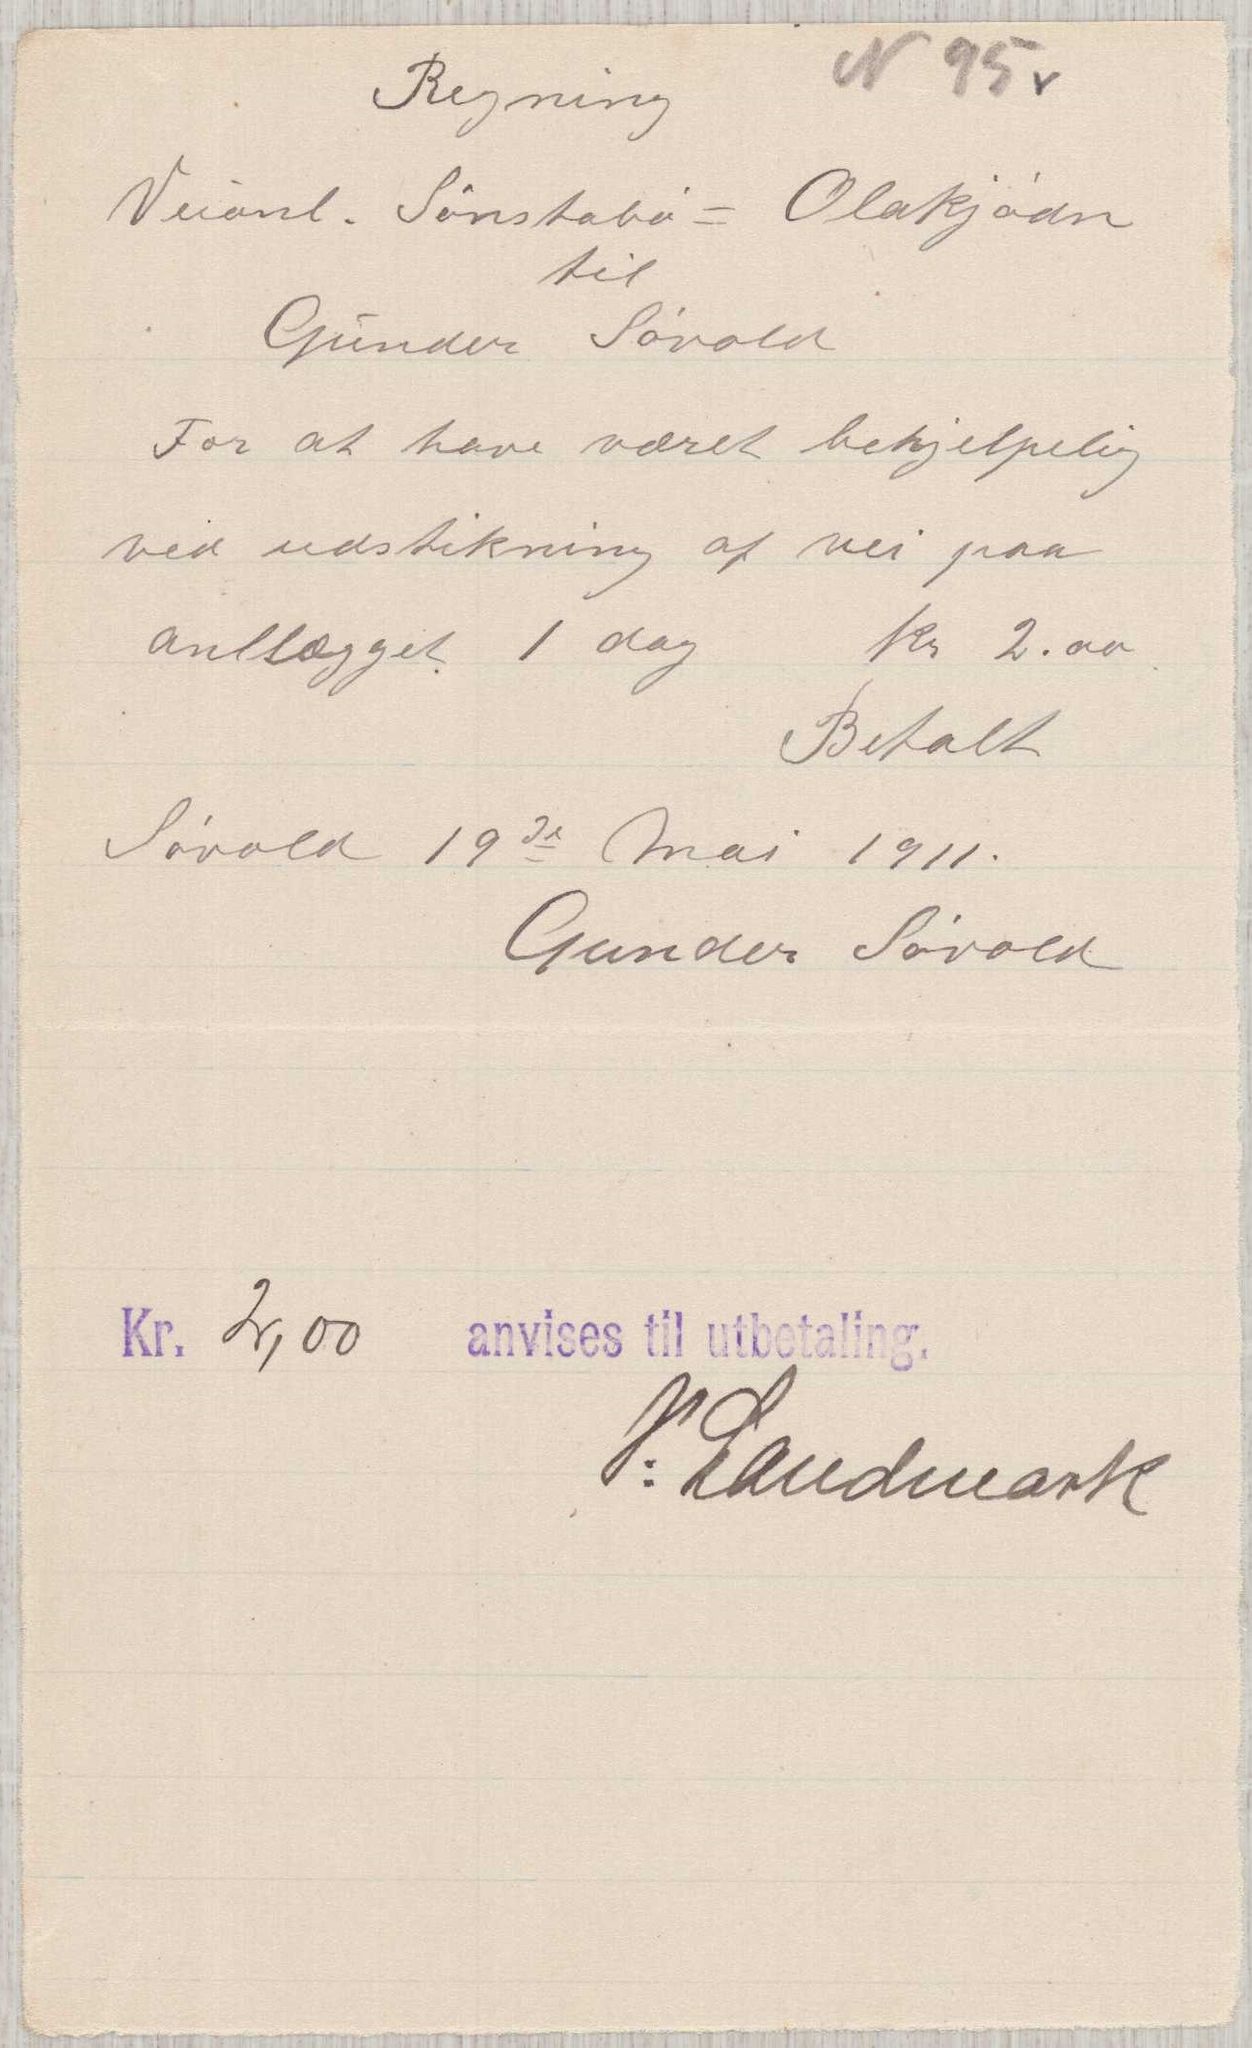 N 95 v
Regning
Veianl. Sónstabó = Olakjódn
til
Gunder Sóvold
For at have været behjelpelig
ved udstikning af vei paa
anllægget 1 dag Kr 2.00
Betalt
Sóvold 19de Mai 1911.
Gunder Sóvold
Kr. 2,00 anvises til utbetaling.
Landmark